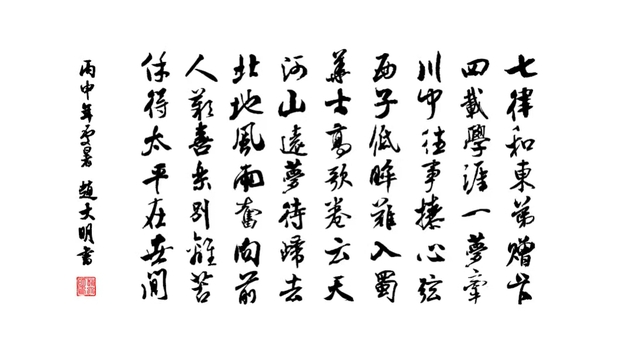 七律和東弟贈
四載學涯一夢牽
川中往事撩心弦
西子低眸難入蜀
華士高歌卷云天
河山遠夢待歸去
北地風雨奮向前
人歎喜樂別離苦
保得太平在世間
丙申年處暑 趙文明書